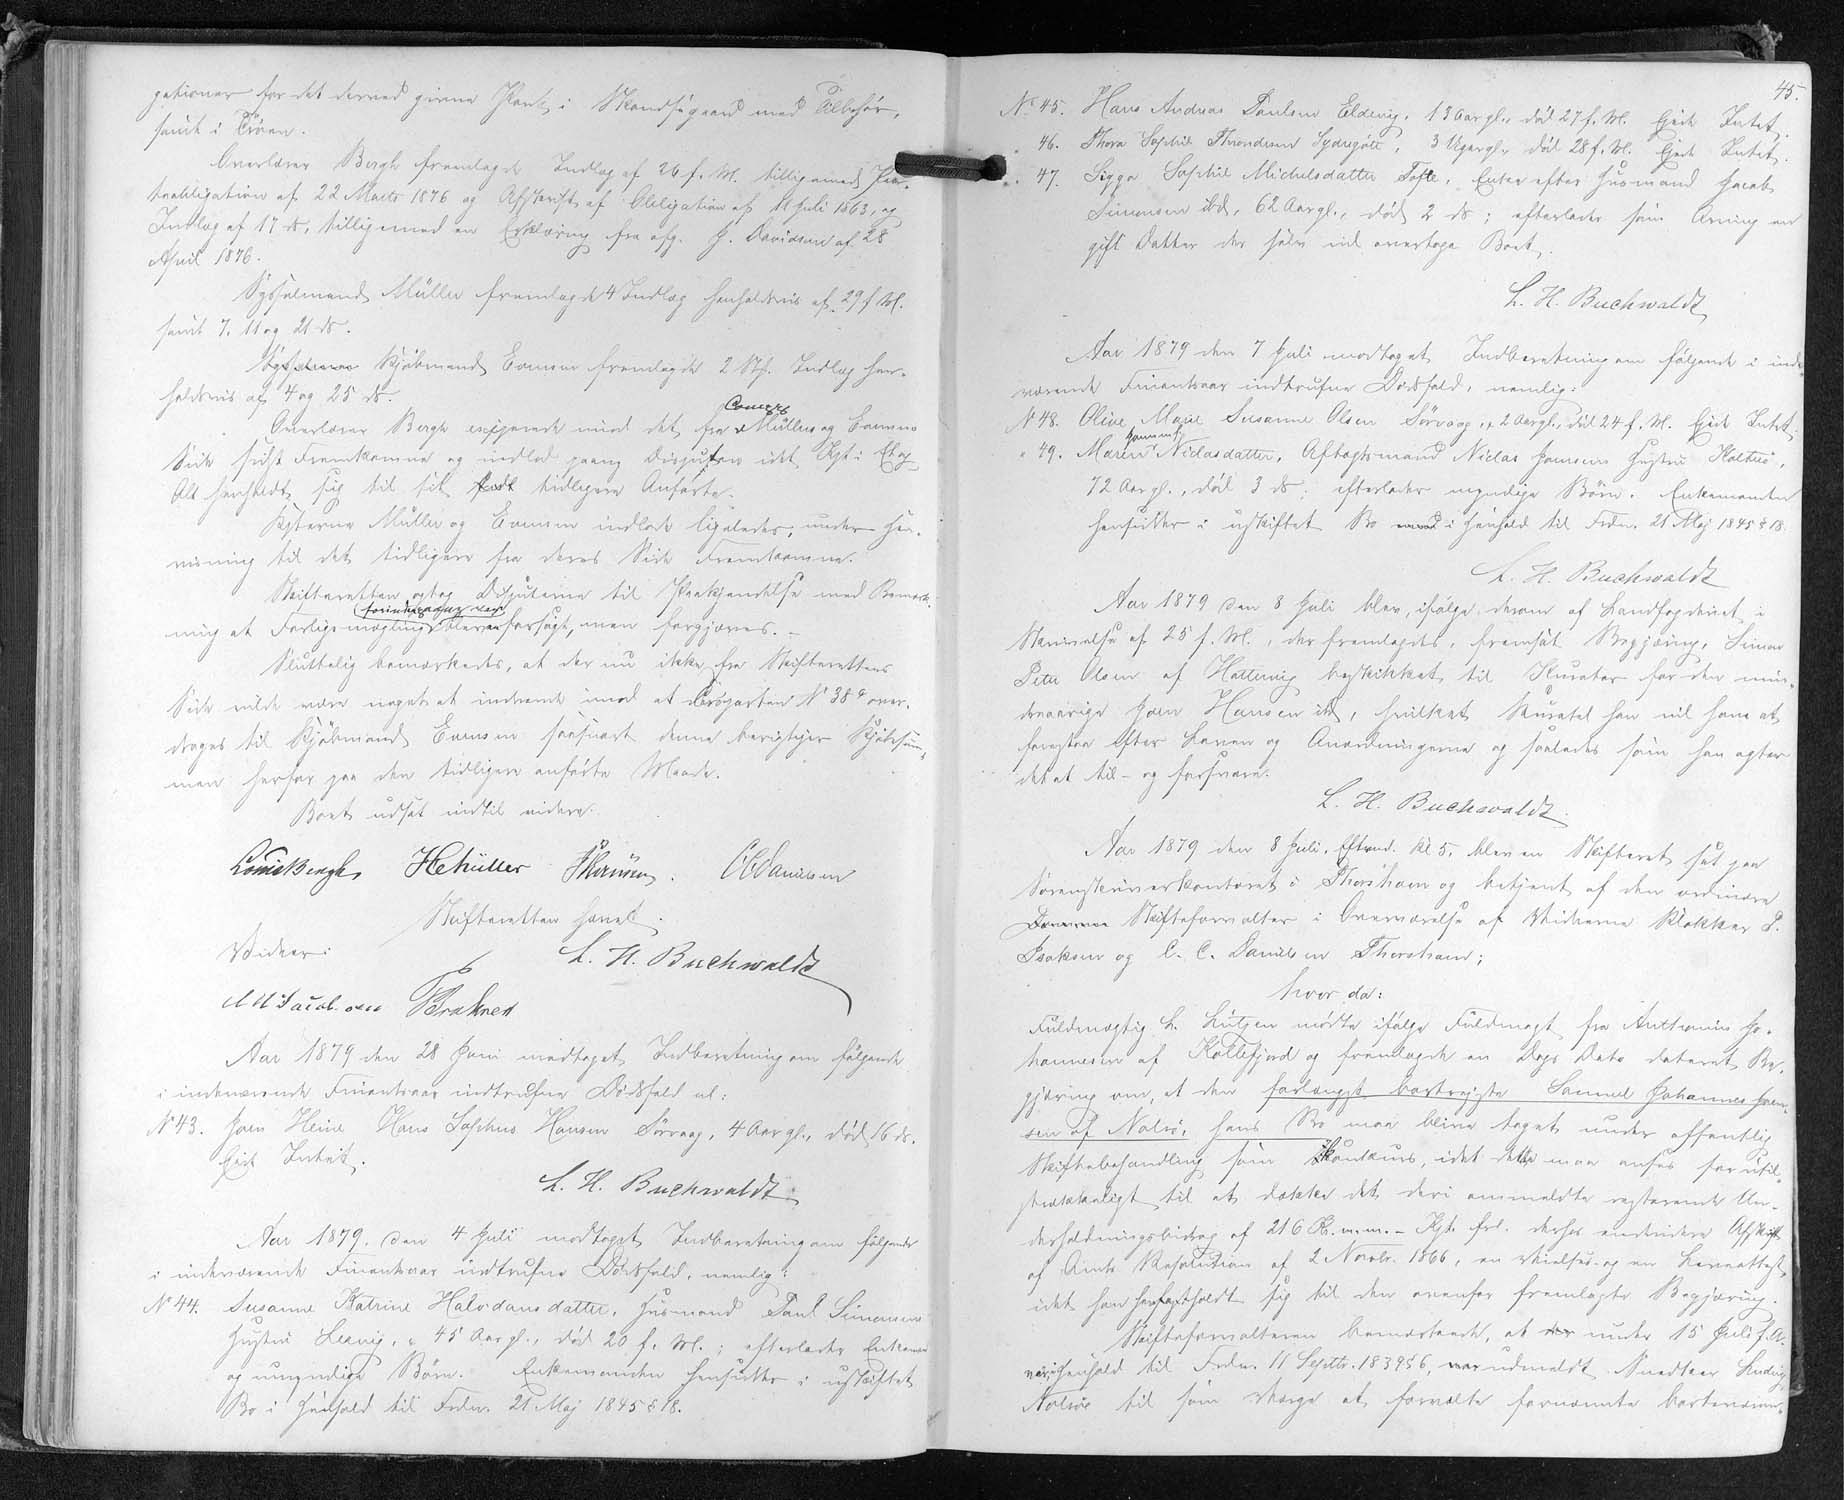 gationer for det derved givne Pant i Mandsøgaard med Tilbehør,
samt i Trøen.
Overlærer Bergh fremlagde Indlæg af 26 f. M. tilligemed Pan-
teobligation af 22 Marts 1876 og Afskrift af Obligation af 11 Juli 1863, og
Indlæg af 17 ds, tilligemed en Erklæring fra afg. J. Davidsen af 28
April 1876.
Sysselmand Müller fremlagde 4 Indlæg henholdsvis af 29 f. M.
samt 7, 11 og 21 ds.
Kjøbmand Evensen fremlagde 2 Stk. Indlæg hen-
holdsvis af 4 og 25 ds.
Overlærer Bergh imod det fra Müllers og Evensens
Side sidst Fremkomne og indlod paany Disputen idet Kpt. i Et og
Alt henholdt sig til sit tidligere Anførte.
Kpterne Müller og Evensen indlod ligeledes, under Hen-
visning til det tidligere fra deres Side Fremkomne.
Skifteretten optog Disputerne til Paakjendelse med Bemærk-
ning at Forligsmægling forsøgt, men forgjæves. -
Sluttelig bemærkedes, at der nu ikke fra Skifterettens
Side vilde være noget at indvende imod at N° 38 a over-
drages til Kjøbmand Evensen saasnart denne berigtiger Kjøbesum-
men herfor paa den tidligere anførte Maade.
Boet udsat indtil videre.
Louis Bergh HC Müller C C Danielsen
Skifteretten hævet.
Vidner: L. H. Buchwaldt
Jacobsen
Aar 1879 den 28 Juni modtoges Indberetning om følgende
i indeværende Finantsaar indtrufne Dødsfald nl:
N° 43. Joen Heine Hans Sophus Hansen Sørvaag, 4 Aar gl., død 16 ds.
Ejede Intet.
L. H. Buchwaldt
Aar 1879. den 4 Juli modtoges Indberetning om følgende
i indeværende Finantsaar indtrufne Dødsfald, nemlig:
N° 44. Susanne Katrine Halvdansdatter, Husmand Poul Simonsens
Hustru Leervig, 45 Aar gl., død 20 f. M.; efterlader Enkemand
og umyndige Børn. Enkemanden hensidder i uskiftet
Bo i Henhold til Frdn. 21 Maj 1845 § 18.
45.
N° 45. Hans Andreas Poulsen Eldevig, 13 Aar gl., død 27 f. M. Ejede Intet.
" 46. Thora Sophie Thomdsen Sydregøte, 3 Uger gl., død 28 f. M. Ejede Intet.
" 47. Sigga Sophie Michelsdatter Tofte, Enke efter Husmand Jacob
Simonsen ibd., 62 Aar gl., død 2 ds; efterlader som Arving en
gift Datter der selv vil overtage Boet.
L. H. Buchwaldt
Aar 1879 den 7 Juli modtoges Indberetning om følgende i inde-
værende Finantsaar indtrufne Dødsfald, nemlig:
N° 48. Olive Marie Susanne Olsen Sørvaag, 2 Aar gl., død 24 f. M. Ejede Intet.
" 49. Maren Niclasdatter, Aftægtsmand Niclas Joensens Hustru Kaltnes,
72 Aar gl., død 3 ds; efterlader myndige Børn. Enkemanden
hensidder i uskiftet Bo i Henhold til Frdn. 21 Maj 1845 § 18.
L. H. Buchwaldt
Aar 1879 den 8 Juli blev, ifølge derom af Landfogderiet i
Skrivelse af 25 f. M., der fremlagdes, fremsat Begjæring, Simon
Peter Olsen af Hattervig beskikket til Kurator for den min-
dreaarige Joen Hansen ibd, hvilket Kuratel han vil have at
forestaa efter Loven og Anordningerne og saaledes som han agter
det at til- og forsvare.
L. H. Buchwaldt
Aar 1879 den 8 Juli, Eftmd. Kl 5, blev en Skifteret sat paa
Sorenskriverkontoret i Thorshavn og betjent af den ordinære
Skifteforvalter i Overværelse af Vidnerne Klokker P.
Isaksen og C. C. Danielsen Thorshavn;
hvor da:
Fuldmægtig L. Lützen mødte ifølge Fuldmagt fra Anthonius Jo-
hannesen af Kollefjord og fremlagde en Dags Dato dateret Be-
gjæring om, at den forlængst bortrejste Samuel Johannes Joen-
sen af Nolsø, hans Bo maa blive taget under offentlig
Skiftebehandling som Konkurs, idet dette maa anses for util-
strækkeligt til at dække det deri anmeldte resterende Un-
derholdningsbidrag af 216 Kr. m. m. - Kpt. frl. derhos endvidere Afskrift
af Amts Resolution af 2 Novbr. 1866, en Vielses- og en Leveattest,
idet han henholdt sig til den ovenfor fremlagte Begjæring.
Skifteforvalteren bemærkede, at under 15 Juli f. A.
var i Henhold til Frdn. 11 Septbr. 1839 § 6, udmeldt Snedker Ludvig
Nolsøe til som Værge at forvalte fornævnte bortværen-